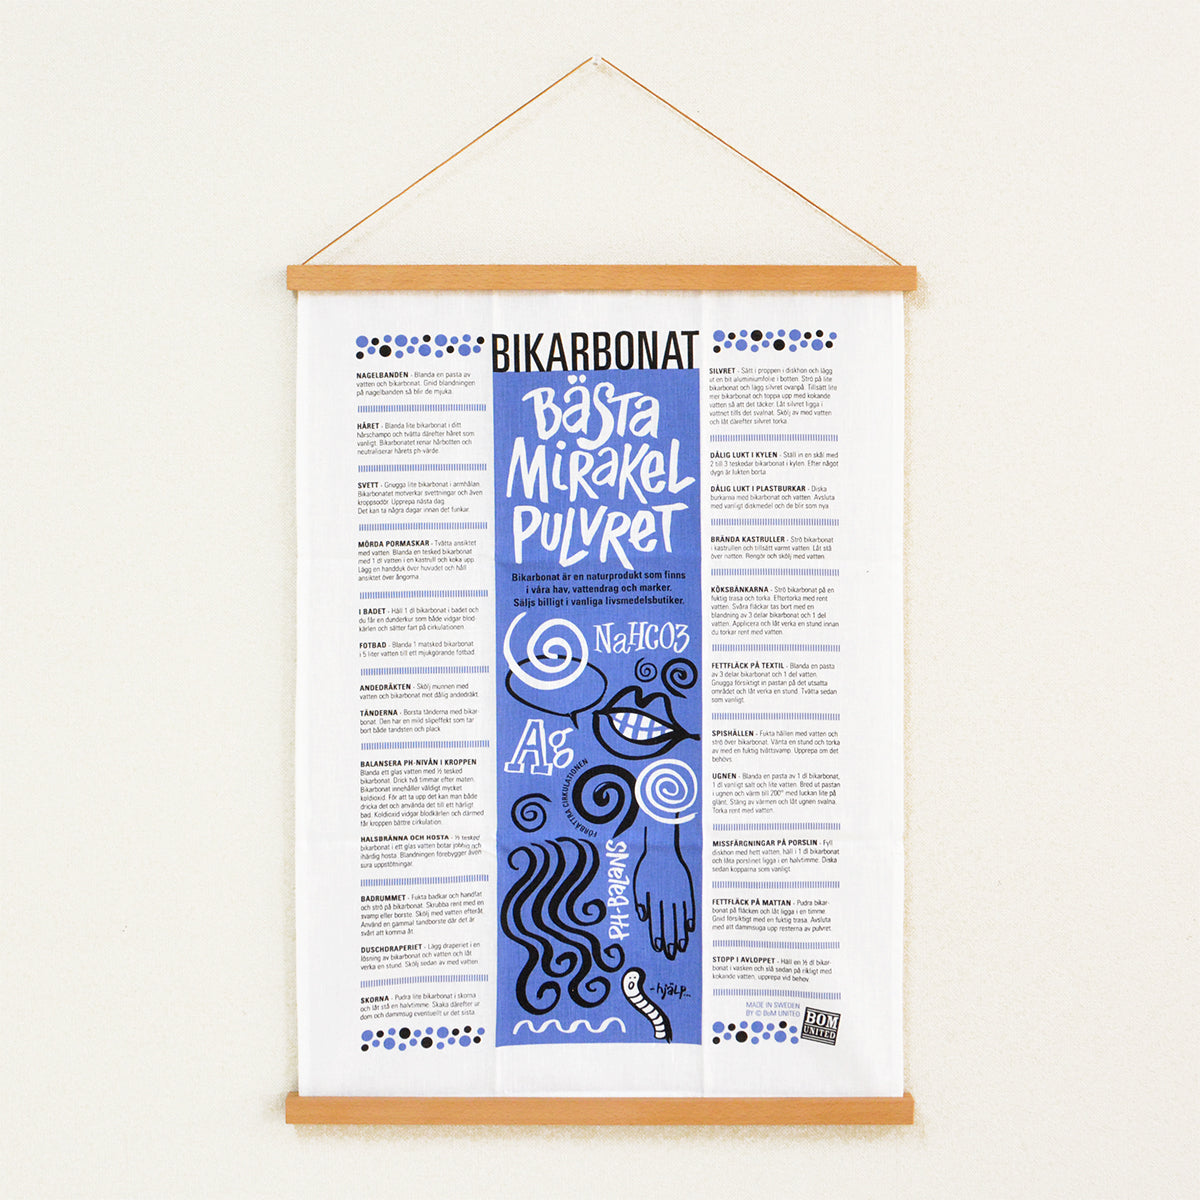 BIKARBONAT
BÄSTA
MIRAKEL
PULVRET
Bikarbonat är en naturprodukt som finns
i våra hav, vattendrag och marker.
Säljs billigt i vanliga livsmedelsbutiker.
NaHCO3
Ag
FÖRBÄTTRA CIRKULATIONEN
PH-BALANS
-hjälp...
NAGELBANDEN - Blanda en pasta av
vatten och bikarbonat. Gnid blandningen
på nagelbanden så blir de mjuka.
HÅRET - Blanda lite bikarbonat i ditt
hårschampo och tvätta därefter håret som
vanligt. Bikarbonatet renar hårbotten och
neutraliserar hårets ph-värde.
SVETT - Gnugga lite bikarbonat i armhålan.
Bikarbonatet motverkar svettningar och även
kroppsodör. Upprepa nästa dag.
Det kan ta några dagar innan det funkar.
MÖRDA PORMASKAR - Tvätta ansiktet
med vatten. Blanda en tesked bikarbonat
med 1 dl vatten i en kastrull och koka upp.
Lägg en handduk över huvudet och håll
ansiktet över ångorna.
I BADET - Häll 1 dl bikarbonat i badet och
du får en dunderkur som både vidgar blod
kärlen och sätter fart på cirkulationen.
FOTBAD - Blanda 1 matsked bikarbonat
i 5 liter vatten till ett mjukgörande fotbad.
ANDEDRÄKTEN - Skölj munnen med
vatten och bikarbonat mot dålig andedräkt.
TÄNDERNA - Borsta tänderna med bikar-
bonat. Den har en mild slipeffekt som tar
bort både tandsten och plack
BALANSERA PH-NIVÅN I KROPPEN
Blanda ett glas vatten med ½ tesked
bikarbonat. Drick två timmar efter maten.
Bikarbonat innehåller väldigt mycket
koldioxid. För att ta upp det kan man både
dricka det och använda det till ett härligt
bad. Koldioxid vidgar blodkärlen och därmed
får kroppen bättre cirkulation.
HALSBRÄNNA OCH HOSTA - ½ tesked
bikarbonat i ett glas vatten botar jobbig och
ihärdig hosta. Blandningen förebygger även
sura uppstötningar.
BADRUMMET - Fukta badkar och handfat
och strö på bikarbonat. Skrubba rent med en
svamp eller borste. Skölj med vatten efteråt.
Använd en gammal tandborste där det är
svårt att komma åt.
DUSCHDRAPERIET - Lägg draperiet i en
lösning av bikarbonat och vatten och låt
verka en stund. Skölj sedan av med vatten.
SKORNA - Pudra lite bikarbonat i skorna
och låt stå en halvtimme. Skaka därefter ur
dom och dammsug eventuellt ur det sista.
SILVRET - Sätt i proppen i diskhon och lägg
ut en bit aluminiumfolie i botten. Strö på lite
bikarbonat och lägg silvret ovanpå. Tillsätt lite
mer bikarbonat och toppa upp med kokande
vatten så att det täcker. Låt silvret ligga i
vattnet tills det svalnat. Skölj av med vatten
och låt därefter silvret torka.
DÅLIG LUKT I KYLEN - Ställ in en skål med
2 till 3 teskedar bikarbonat i kylen. Efter något
dygn är lukten borta.
DÅLIG LUKT I PLASTBURKAR - Diska
burkarna med bikarbonat och vatten. Avsluta
med vanligt diskmedel och de blir som nya.
BRÄNDA KASTRULLER - Strö bikarbonat
i kastrullen och tillsätt varmt vatten. Låt stå
över natten. Rengör och skölj med vatten.
KÖKSBÄNKARNA - Strö bikarbonat på en
fuktig trasa och torka. Eftertorka med rent
vatten. Svåra fläckar tas bort med en
blandning av 3 delar bikarbonat och 1 del
vatten. Applicera och låt verka en stund innan
du torkar rent med vatten.
FETTFLÄCK PÅ TEXTIL - Blanda en pasta
av 3 delar bikarbonat och 1 del vatten.
Gnugga försiktigt in pastan på det utsatta
området och låt verka en stund. Tvätta sedan
som vanligt.
SPISHÄLLEN - Fukta hällen med vatten och
strö över bikarbonat. Vänta en stund och torka
av med en fuktig tvättsvamp. Upprepa om det
behövs.
UGNEN - Blanda en pasta av 1 dl bikarbonat,
1 dl vanligt salt och lite vatten. Bred ut pastan
i ugnen och värm till 200° med luckan lite på
glänt. Stäng av värmen och låt ugnen svalna.
Torka rent med vatten.
MISSFÄRGNINGAR PÅ PORSLIN - Fyll
diskhon med hett vatten, häll i 1 dl bikarbonat
och låta porslinet ligga i en halvtimme. Diska
sedan kopparna som vanligt.
FETTFLÄCK PÅ MATTAN - Pudra bikar-
bonat på fläcken och låt ligga i en timme.
Gnid försiktigt med en fuktig trasa. Avsluta
med att dammsuga upp resterna av pulvret.
STOPP I AVLOPPET - Häll en ½ dl bikar-
bonat i vasken och slå sedan på rikligt med
kokande vatten, upprepa vid behov.
MADE IN SWEDEN
BY © BoM UNITED
BOM
UNITED